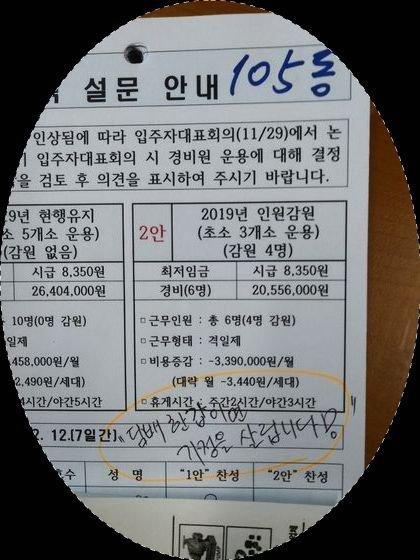 설문 안내 105동
인상됨에 따라 입주자대표회의(11/29)에서 논
입주자대표회의 시 경비원 운용에 대해 결정
검토 후 의견을 표시하여 주시기 바랍니다.
9년 현행유지
소 5개소 운용)
(감원 없음)
2안
2019년 인원감원
(초소 3개소 운용)
(감원 4명)
시급 8,350원
최저임금
시급 8,350원
26,404,000원
경비(6명)
20,556,000원
10명(0명 감원)
일제
458,000원/월
2,490원/세대)
4시간/야간5시간
▫근무인원 : 총 6명(4명 감원)
▫근무형태 : 격일제
▫비용증감 : -3,390,000원/월
(대략 월 -3,440원/세대)
▫휴게시간 : 주간2시간/야간3시간
2. 12.(7일간)
"담배 한갑이면
가정을 살립니다"
호수
성 명
"1안" 찬성
"2안" 찬성